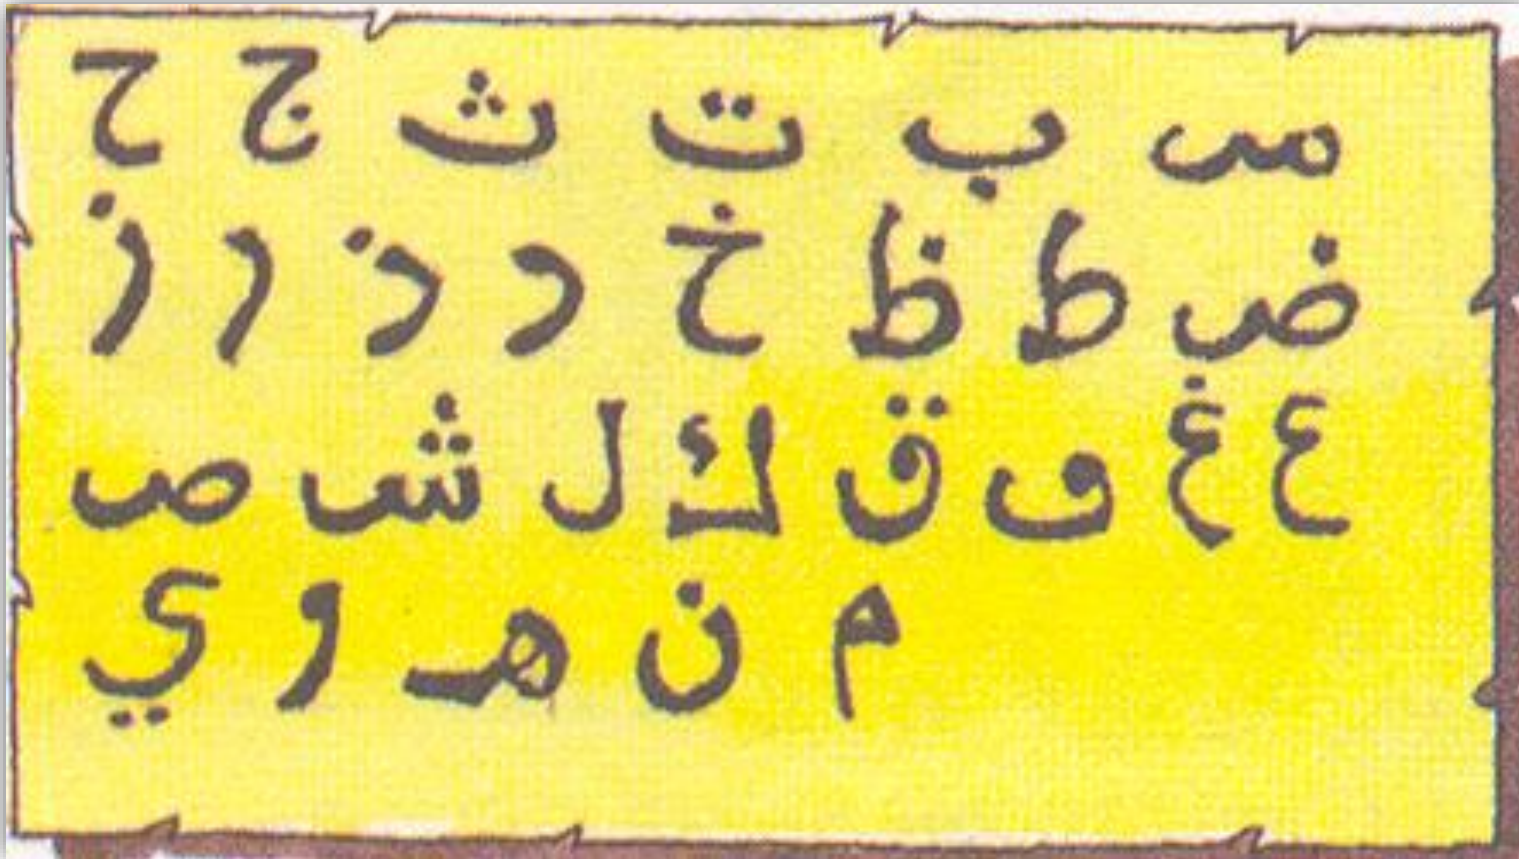 س ب ت ث ج ح
ض ط ظ خ د ذ ر ز
ع غ ڡ ق ك ل ش ص
م ن هـ و ي